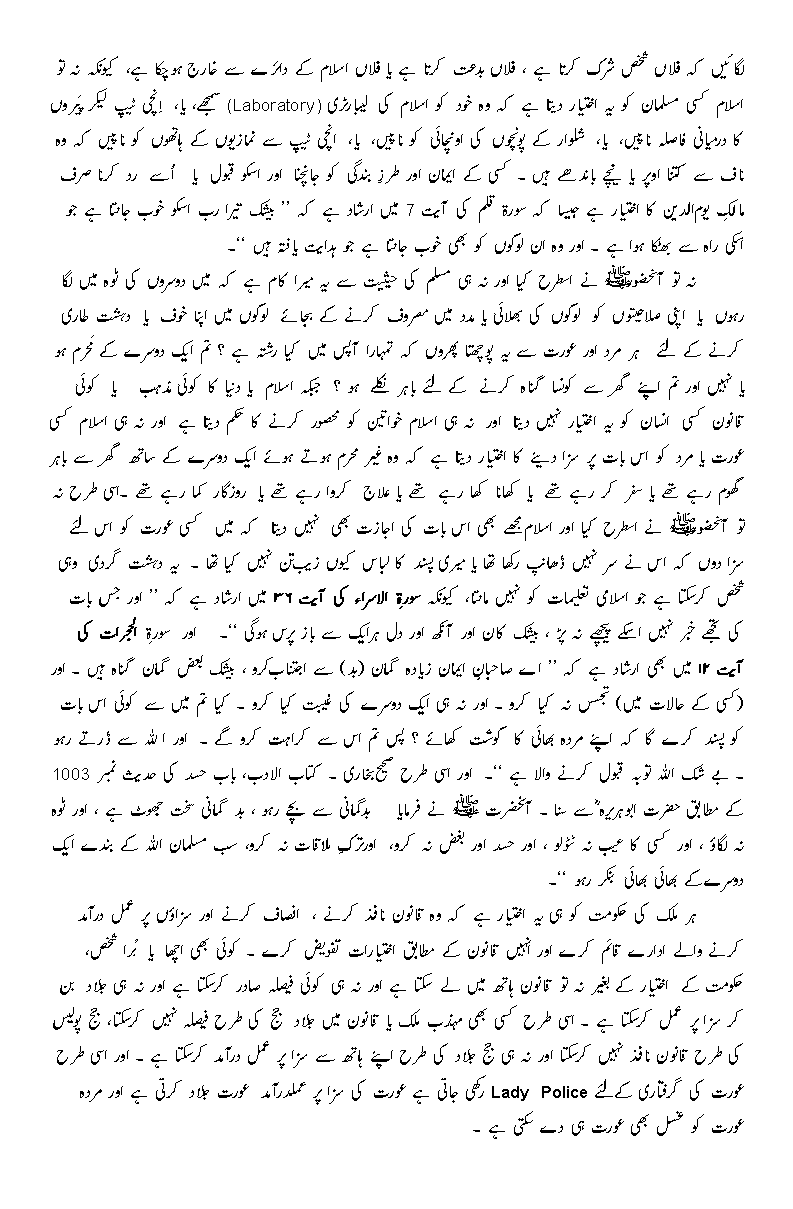 لگائیں کہ فلاں شخص شرک کرتا ہے ، فلاں بدعت کرتا ہے یا فلاں اسلام کے دائرے سے خارج ہوچکا ہے، کیونکہ نہ تو
اسلام کسی مسلمان کو یہ اختیار دیتا ہے کہ وہ خود کو اسلام کی لیبارٹری (Laboratory) سمجھے، یا، اِنچی ٹیپ لیکر پَیروں
کا درمیانی فاصلہ ناپیں، یا، شلوار کے پونچوں کی اونچائی کو ناپیں، یا، انچی ٹیپ سے نمازیوں کے ہاتھوں کو ناپیں کہ وہ
ناف سے کتنا اوپر یا نیچے باندھے ہیں ۔ کسی کے ایمان اور طرزِ بندگی کو جانچنا اور اسکو قبول یا اُسے رد کرنا صرف
مالکِ یوم الدین کا اختیار ہے جیسا کہ سورۃ قلم کی آیت 7 میں ارشاد ہے کہ ’’ بیشک تیرا رب اسکو خوب جانتا ہے جو
اسکی راہ سے بھٹکا ہوا ہے ۔ اور وہ ان لوگوں کو بھی خوب جانتا ہے جو ہدایت یافتہ ہیں ‘‘۔
نہ تو آنحضورﷺ نے اسطرح کیا اور نہ ہی مسلم کی حیثیت سے یہ میرا کام ہے کہ میں دوسروں کی ٹوہ میں لگا
رہوں یا اپنی صلاحیتوں کو لوگوں کی بھلائی یا مدد میں مصروف کرنے کے بجائے لوگوں میں اپنا خوف یا دہشت طاری
کرنے کے لئے ہر مرد اور عورت سے یہ پوچھتا پھروں کہ تمہارا آپس میں کیا رشتہ ہے ؟ تم ایک دوسرے کے محْرم ہو
یا نہیں اور تم اپنے گھر سے کونسا گناہ کرنے کے لئے باہر نکلے ہو ؟ جبکہ اسلام یا دنیا کا کوئی مذہب یا کوئی
قانون کسی انسان کو یہ اختیار نہیں دیتا اور نہ ہی اسلام خواتین کو محصور کرنے کا حکم دیتا ہے اور نہ ہی اسلام کسی
عورت یا مرد کو اس بات پر سزا دینے کا اختیار دیتا ہے کہ وہ غیر محرم ہوتے ہوئے ایک دوسرے کے ساتھ گھر سے باہر
گھوم رہے تھے یا سفر کر رہے تھے یا کھانا کھا رہے تھے یا علاج کروا رہے تھے یا روزگار کما رہے تھے ۔اسی طرح نہ
تو آنحضورﷺ نے اسطرح کیا اور اسلام مجھے بھی اس بات کی اجازت بھی نہیں دیتا کہ میں کسی عورت کو اس لئے
سزا دوں کہ اس نے سر نہیں ڈھانپ رکھا تھا یا میری پسند کا لباس کیوں زیب تن نہیں کیا تھا ۔ یہ دہشت گردی وہی
شخص کرسکتا ہے جو اسلامی تعلیمات کو نہیں مانتا، کیونکہ سورۃ الاسراء کی آیت ۳۶ میں ارشاد ہے کہ ’’ اور جس بات
کی تجھے خبر نہیں اسکے پیچھے نہ پڑ ، بیشک کان اور آنکھ اور دل ہرایک سے باز پرس ہوگی ‘‘۔ اور سورۃ الحُجرات کی
آیت ۱۲ میں بھی ارشاد ہے کہ ’’ اے صاحبانِ ایمان زیادہ گمان (بد) سے اجتناب کرو ، بیشک بعض گمان گناہ ہیں ۔ اور
(کسی کے حالات میں) تجسس نہ کیا کرو ۔ اور نہ ہی ایک دوسرے کی غیبت کیا کرو ۔ کیا تم میں سے کوئی اس بات
کو پسند کرے گا کہ اپنے مردہ بھائی کا گوشت کھائے ؟ پس تم اس سے کراہت کرو گے ۔ اور اللہ سے ڈرتے رہو
۔ بے شک اللہ توبہ قبول کرنے والا ہے ‘‘۔ اور اسی طرح صحیح بخاری ۔ کتاب الادب، باب حسد کی حدیث نمبر 1003
کے مطابق حضرت ابوہریرہؓ سے سنا ۔ آنحضرت ﷺ نے فرمایا بدگمانی سے بچے رہو ، بد گمانی سخت جھوٹ ہے ، اور ٹوہ
نہ لگاؤ ، اور کسی کا عیب نہ ٹٹولو ، اور حسد اور بغض نہ کرو، اور ترکِ ملاقات نہ کرو، سب مسلمان اللہ کے بندے ایک
دوسرے کے بھائی بھائی بنکر رہو ‘‘۔
ہر ملک کی حکومت کو ہی یہ اختیار ہے کہ وہ قانون نافذ کرنے ، انصاف کرنے اور سزاؤں پر عمل درآمد
کرنے والے ادارے قائم کرے اور انہیں قانون کے مطابق اختیارات تفویض کرے ۔ کوئی بھی اچھا یا بُرا شخص،
حکومت کے اختیار کے بغیر نہ تو قانون ہاتھ میں لے سکتا ہے اور نہ ہی کوئی فیصلہ صادر کرسکتا ہے اور نہ ہی جلاد بن
کر سزا پر عمل کرسکتا ہے ۔ اسی طرح کسی بھی مہذب ملک یا قانون میں جلاد جج کی طرح فیصلہ نہیں کرسکتا، جج پولیس
کی طرح قانون نافذ نہیں کرسکتا اور نہ ہی جج جلاد کی طرح اپنے ہاتھ سے سزا پر عمل درآمد کرسکتا ہے ۔ اور اسی طرح
عورت کی گرفتاری کے لئے Lady Police رکھی جاتی ہے عورت کی سزا پر عملدرآمد عورت جلاد کرتی ہے اور مردہ
عورت کو غسل بھی عورت ہی دے سکتی ہے ۔